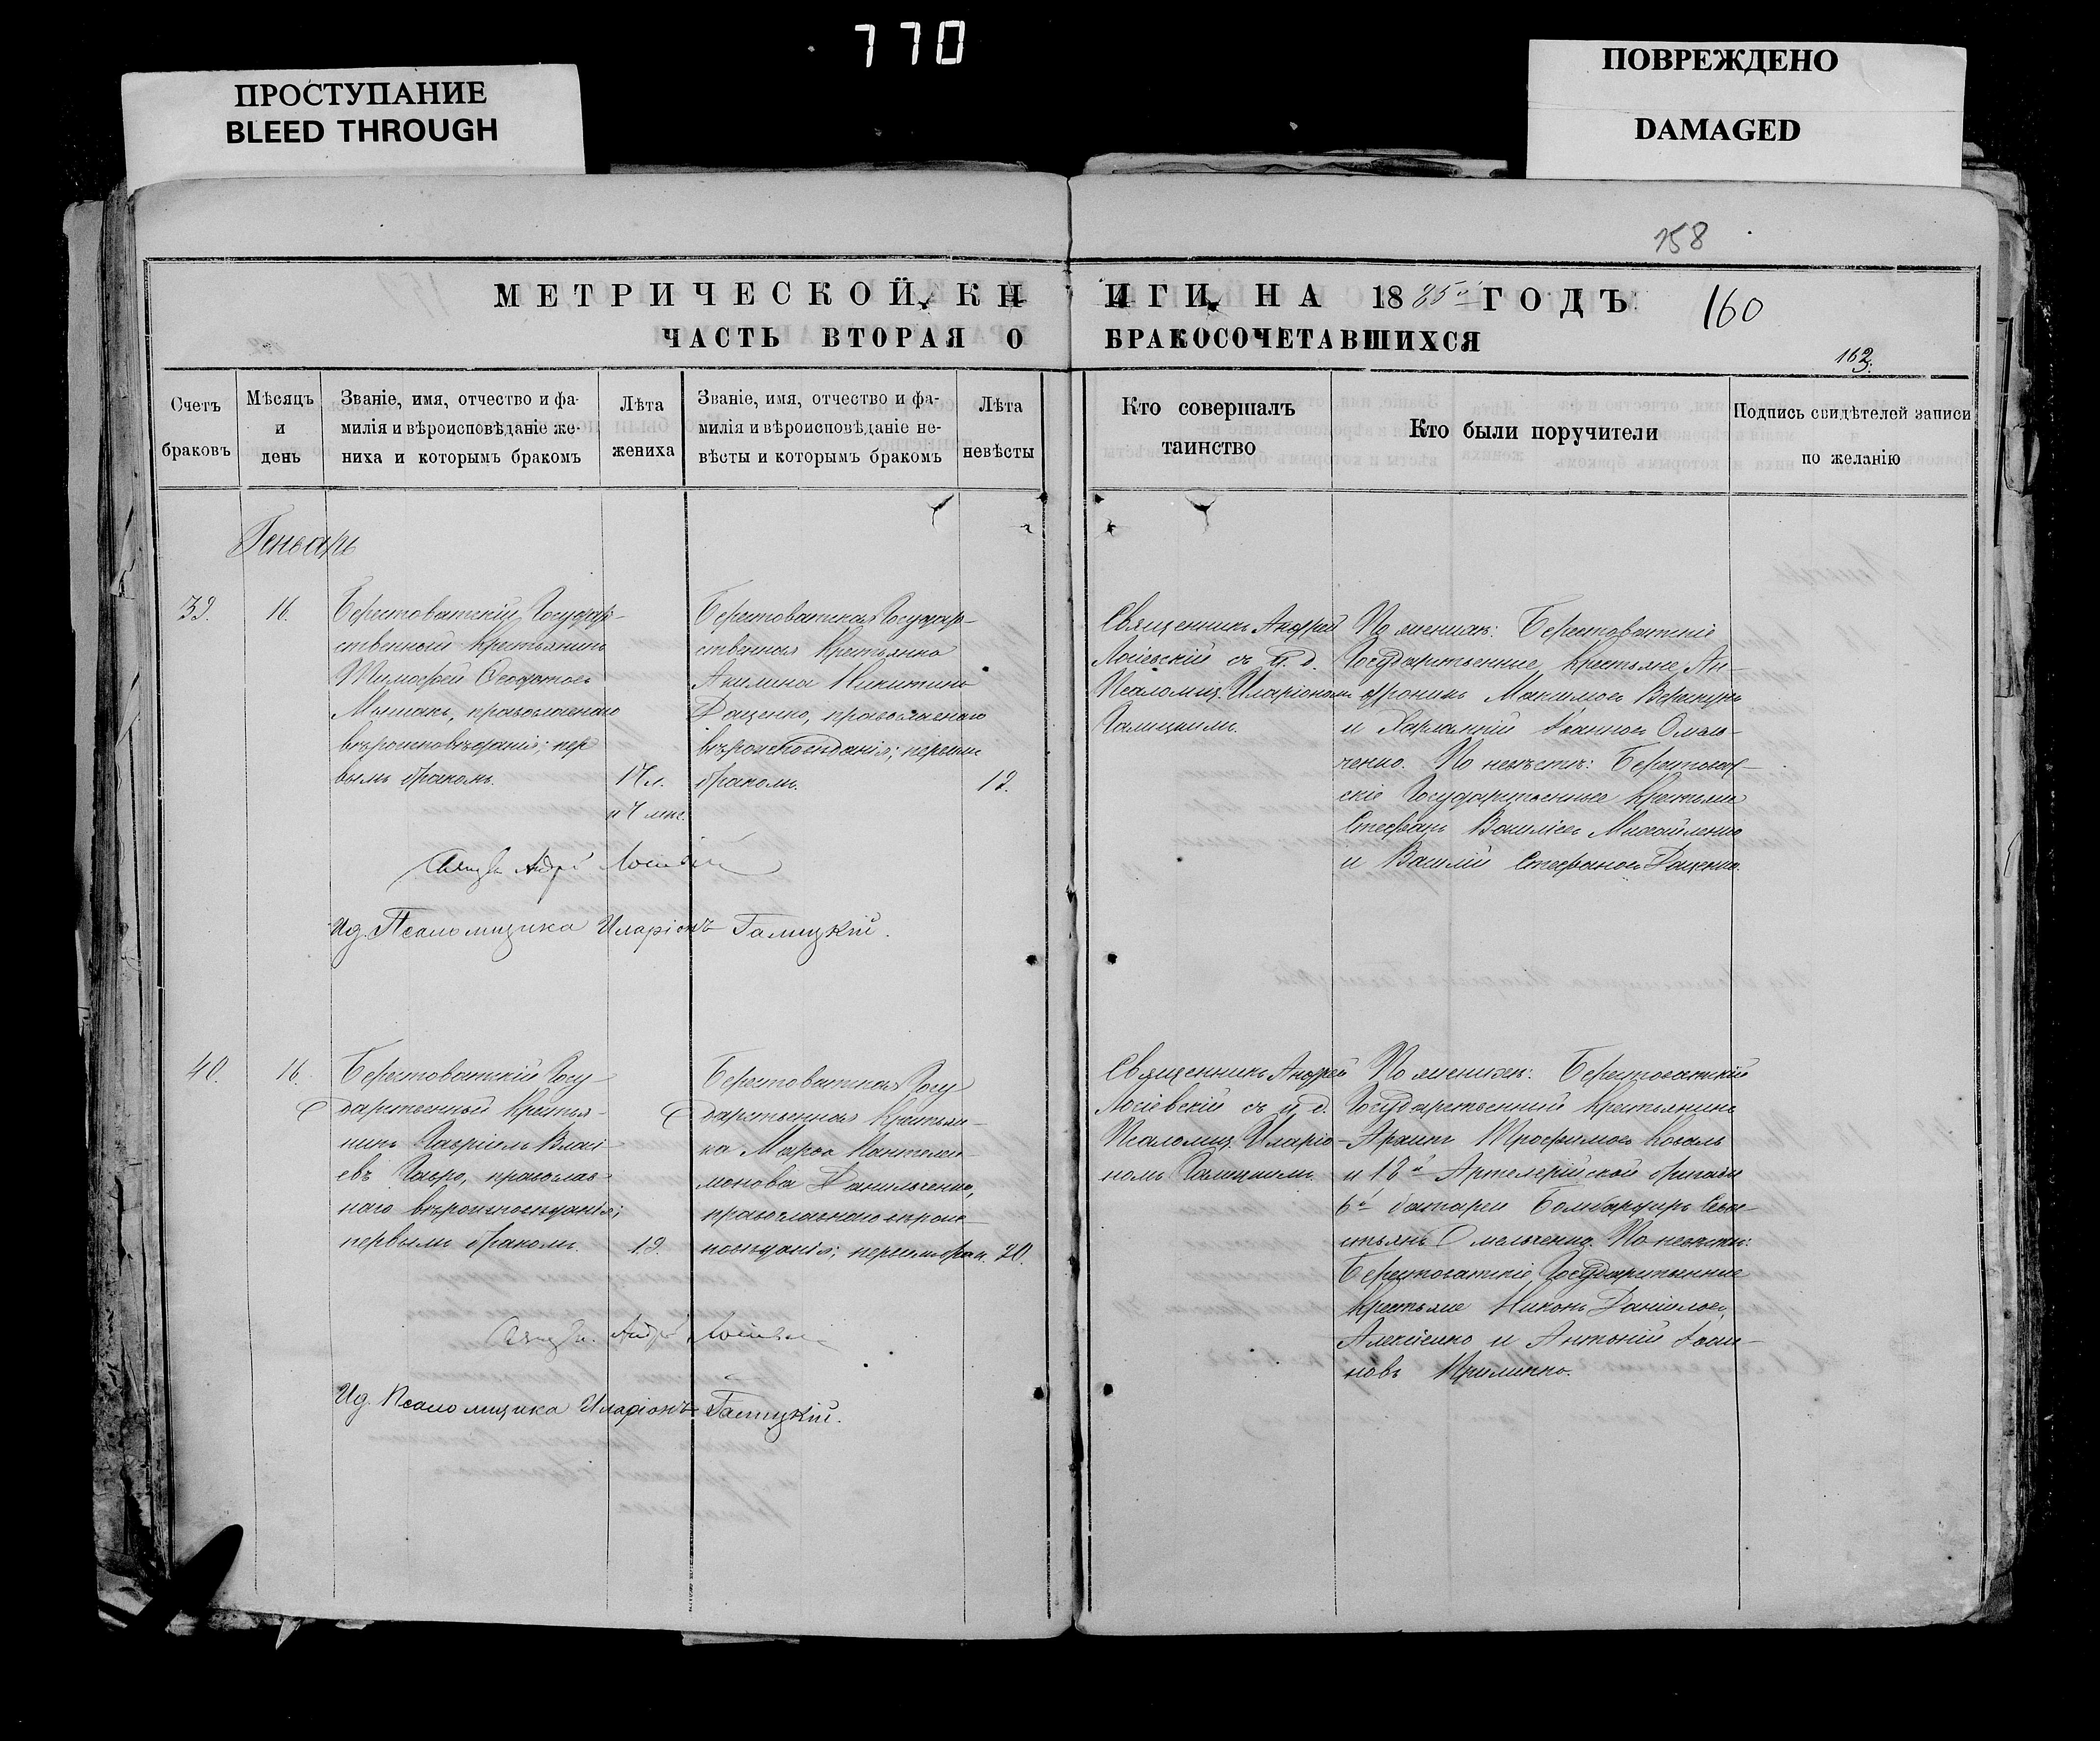 770
ПРОСТУПАНИЕ
BLEED THROUGH
ПОВРЕЖДЕНО
DAMAGED
158
МЕТРИЧЕСКОЙ КНИГИ НА 1885й ГОДЪ
160
ЧАСТЬ ВТОРАЯ О БРАКОСОЧЕТАВШИХСЯ
Счетъ
браковъ
Мѣсяцъ
и
день
Званіе, имя, отчество и фа-
милія и вѣроисповѣданіе же-
ниха и которымъ бракомъ
Лѣта
жениха
Званіе, имя, отчество и фа-
милія и вѣроисповѣданіе не-
вѣсты и которымъ бракомъ
Лѣта
невѣсты
Кто совершалъ
таинство
Кто были поручители
Подпись свидѣтелей записи
по желанію
Геньварь
39.
16.
Берестоватскій Государ-
ственный Крестьянинъ
Тимофей Ѳеодотовъ
православнаго
вѣроисповѣданія; пер
вымъ бракомъ.
17 л.
Берестоватская Государ-
ственная Крестьянка
Акилина Никитина
Даценко, православнаго
вѣроисповѣданія; первымъ
бракомъ.
19.
Священникъ Андрей
Лосіевскій съ и. д.
Псаломщ. Иларіономъ
Галицкимъ.
По женихѣ: Берестоватскіе
Государственные Крестьяне Ан-
дроникъ Максимовъ
и Харлампій Іоанновъ Омель-
ченко. По невѣстѣ: Берестоват-
скіе Государственные Крестьяне
Стефанъ Василіевъ Михайленко
и Василій Стефановъ Даценко.
Андрей Лосіевскій
Ид. Псаломщика Иларіонъ Галицкій.
40.
16.
Берестоватскій Госу-
дарственный Крестья-
нинъ Гавріилъ Власі-
евъ православ-
наго вѣроисповѣданія;
первымъ бракомъ.
19.
Берестоватская Госу
дарственная Крестьян-
ка Марѳа Пантелеи-
монова Данильченко,
православнаго вѣроис-
повѣданія; первымъ брак.
20.
Священникъ Андрей
Лосіевскій съ и. д.
Псаломщ. Иларіо-
номъ Галицкимъ.
По женихѣ: Берестоватскій
Государственный Крестьянинъ
Трофимовъ Коваль
и Артелерійской бригады
6й батареи Бомбардиръ Сева-
стьянъ Омельченко. По невѣстѣ:
Берестоватскіе Государственные
Крестьяне Никонъ Даніиловъ
Алексіенко и Антоній Іоан-
новъ
Андрей Лосіевскій
Ид. Псаломщика Иларіонъ Галицкій.